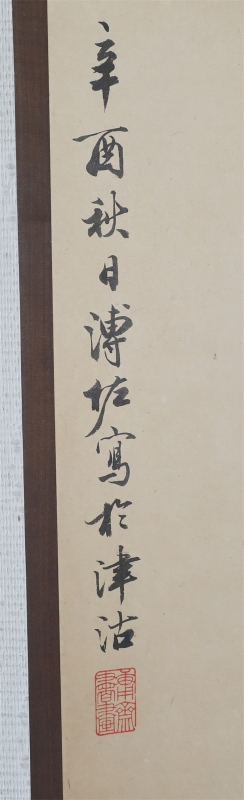 辛酉秋日溥佐寫於津沽